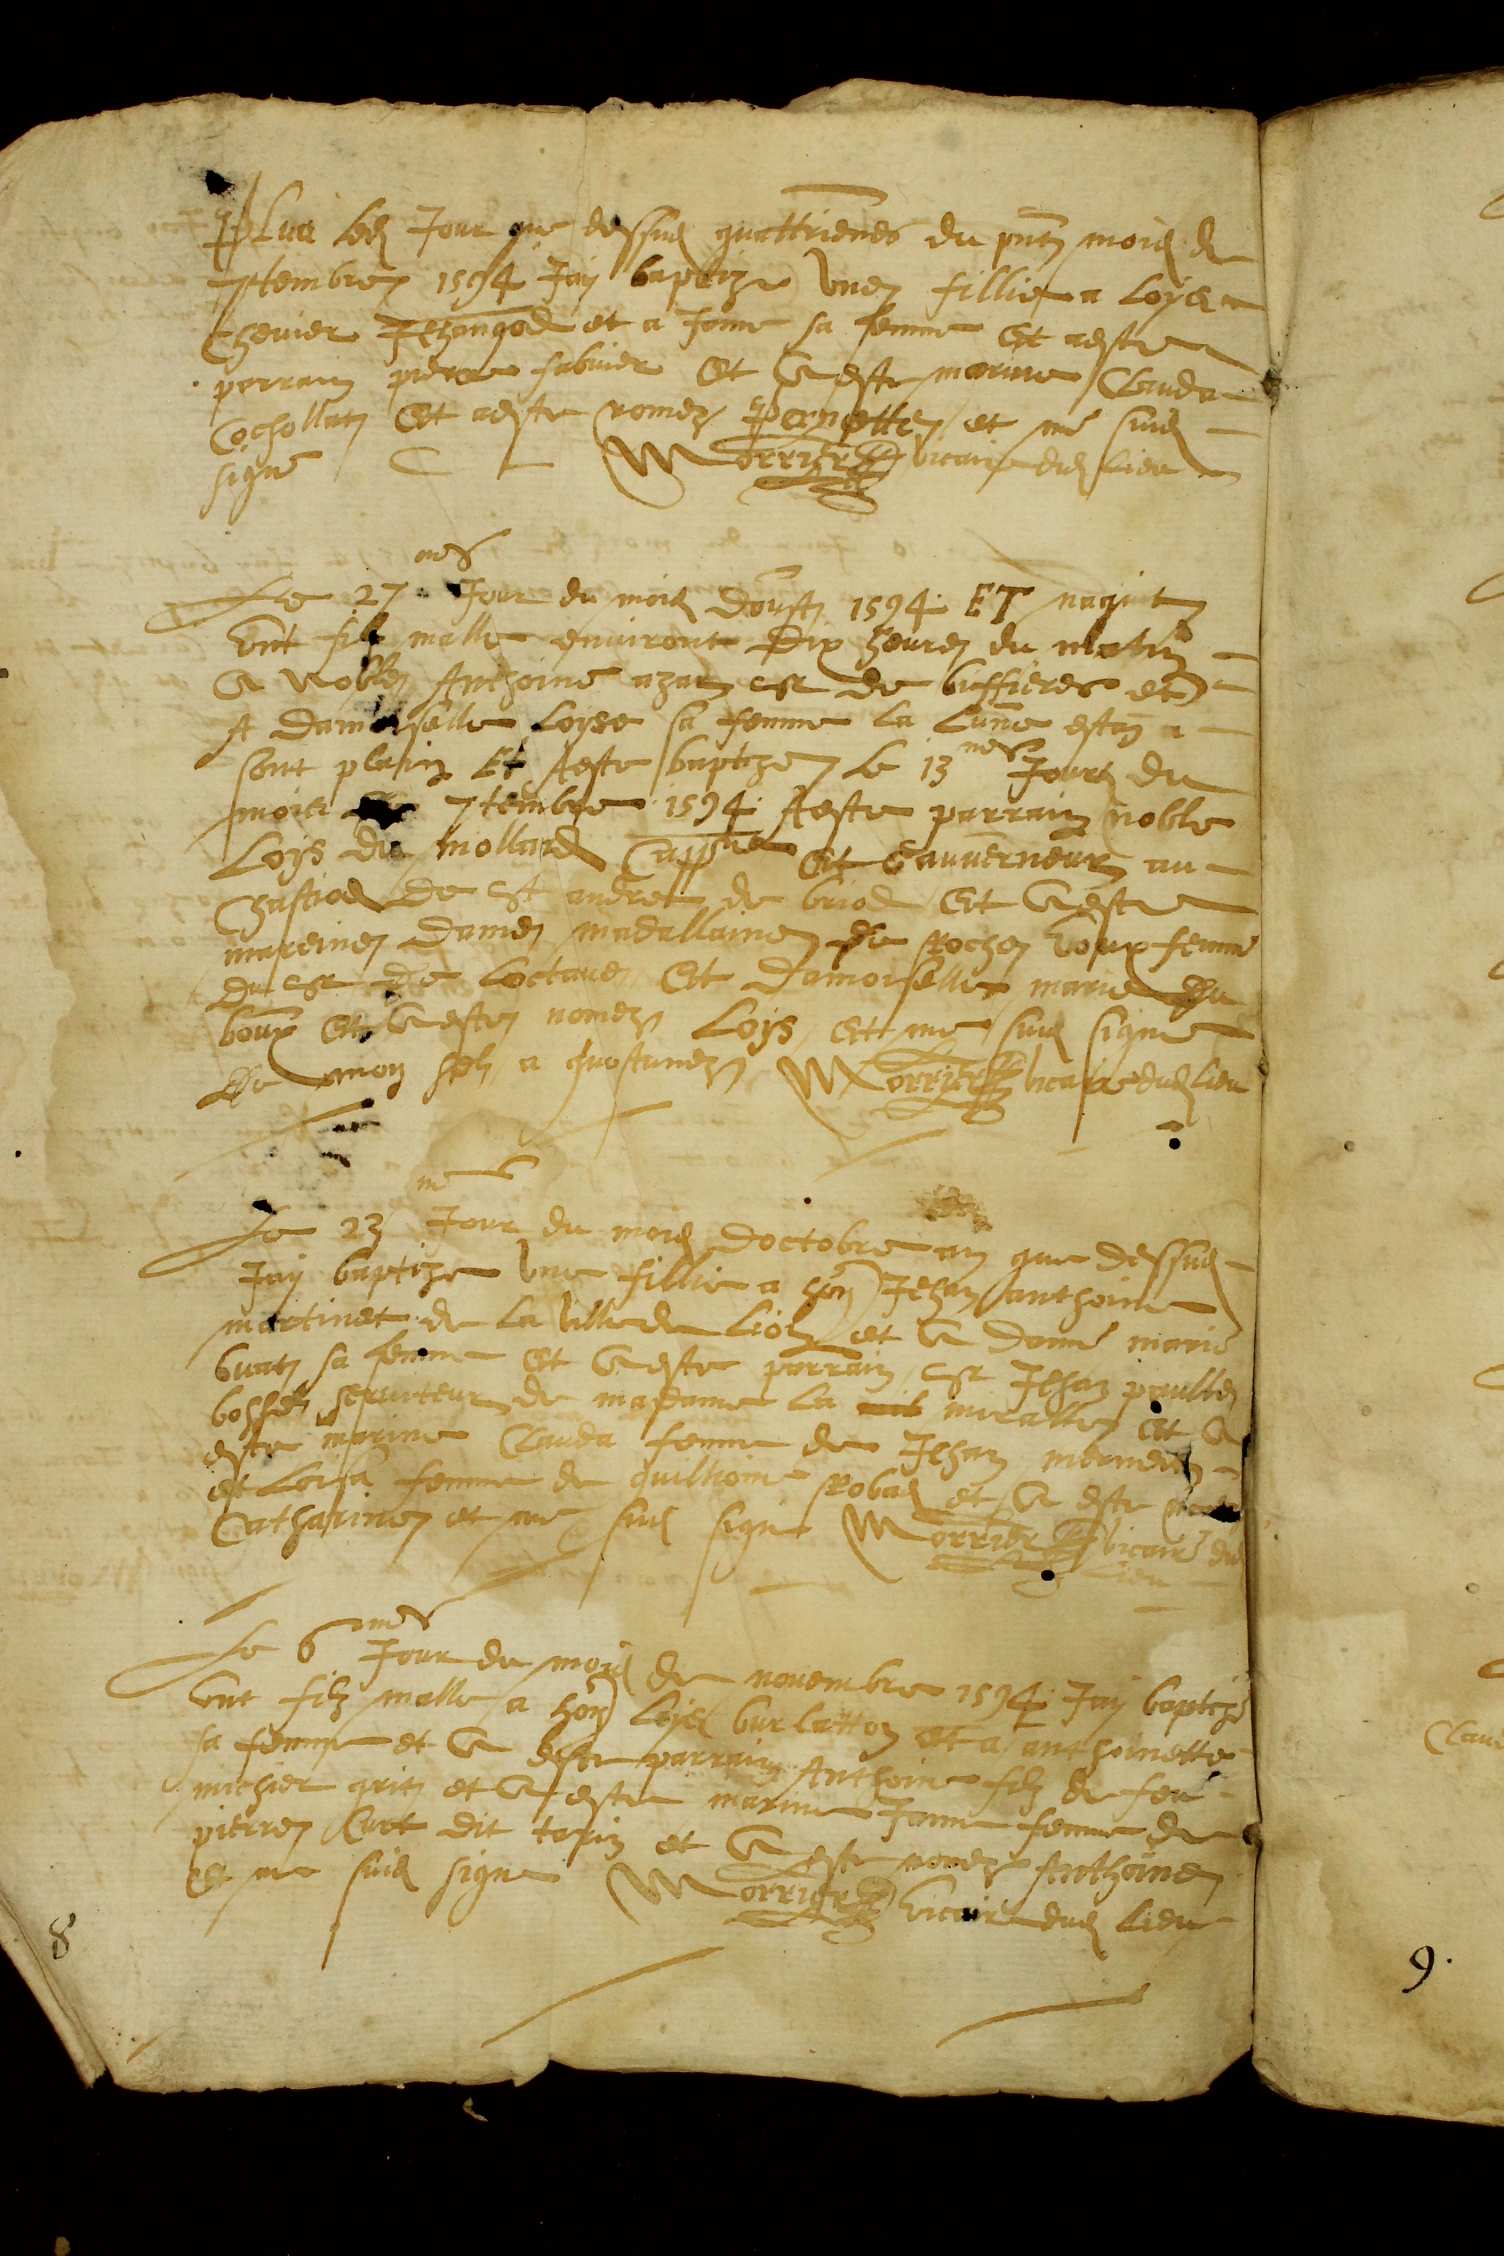 Plus led Jour que dessus quattriemes du pnt mois de
7tembre 1594 Jay baptize une fillie a Loys
Thevier Jehangod et a Jane sa femme Et a este
parrain pierre fabvier Et a este marine Clauda
Cochollat Et a este nomez Pernette et me suis
signe Morrier vicaire dud Lieu
Le 27 mes Jour du mois Doust 1594 ET naquit
unt filz malle environt Dix heures du matin
A Noble Anthoine azar sr de buffieres et
A Damoiselle Loyse sa femme la Lune estan a
sont plain Et A este baptize le 13 mes Jour du
mois 7tembre 1594 A este parrain noble
Loys du Mollard Cappne Et Gauverneur au
Chastiod De St andre de briod Et A este
mareine Dame madallaine De Roche
femme
Du sr De Loctave Et Damoiselle marie Du
boup Et A este nomez Loys Et me suis signe
De mon a Morrier vicaire dud Lieu
Le 23 me Jour du mois Doctobre an que dessus
Jay baptize une fillie a hon Jehan anthoine
martinet de La ville de Lion et A Dame marie
buat sa femme Et A este parrain sr Jehan paulle
serviteur de madame La miralle Et A
este marine Clauda femme de Jehan
et Loisa femme de Guilliome Robad et A este
Catharine et me suis signe Morrier vicaire du
Lieu
Le 6 mes Jour du mois de novembre 1594 Jay baptize
unt filz malle a hon Loys burlatton et a anthoinette
sa femme et A este parrain Anthoine filz de feu
michier grit et A este marine Jane femme de
pierre Curt dit tapin et A este nomez Anthoine
Et me suis signe Morrier vicaire dud Lieu
8
9.
Clau